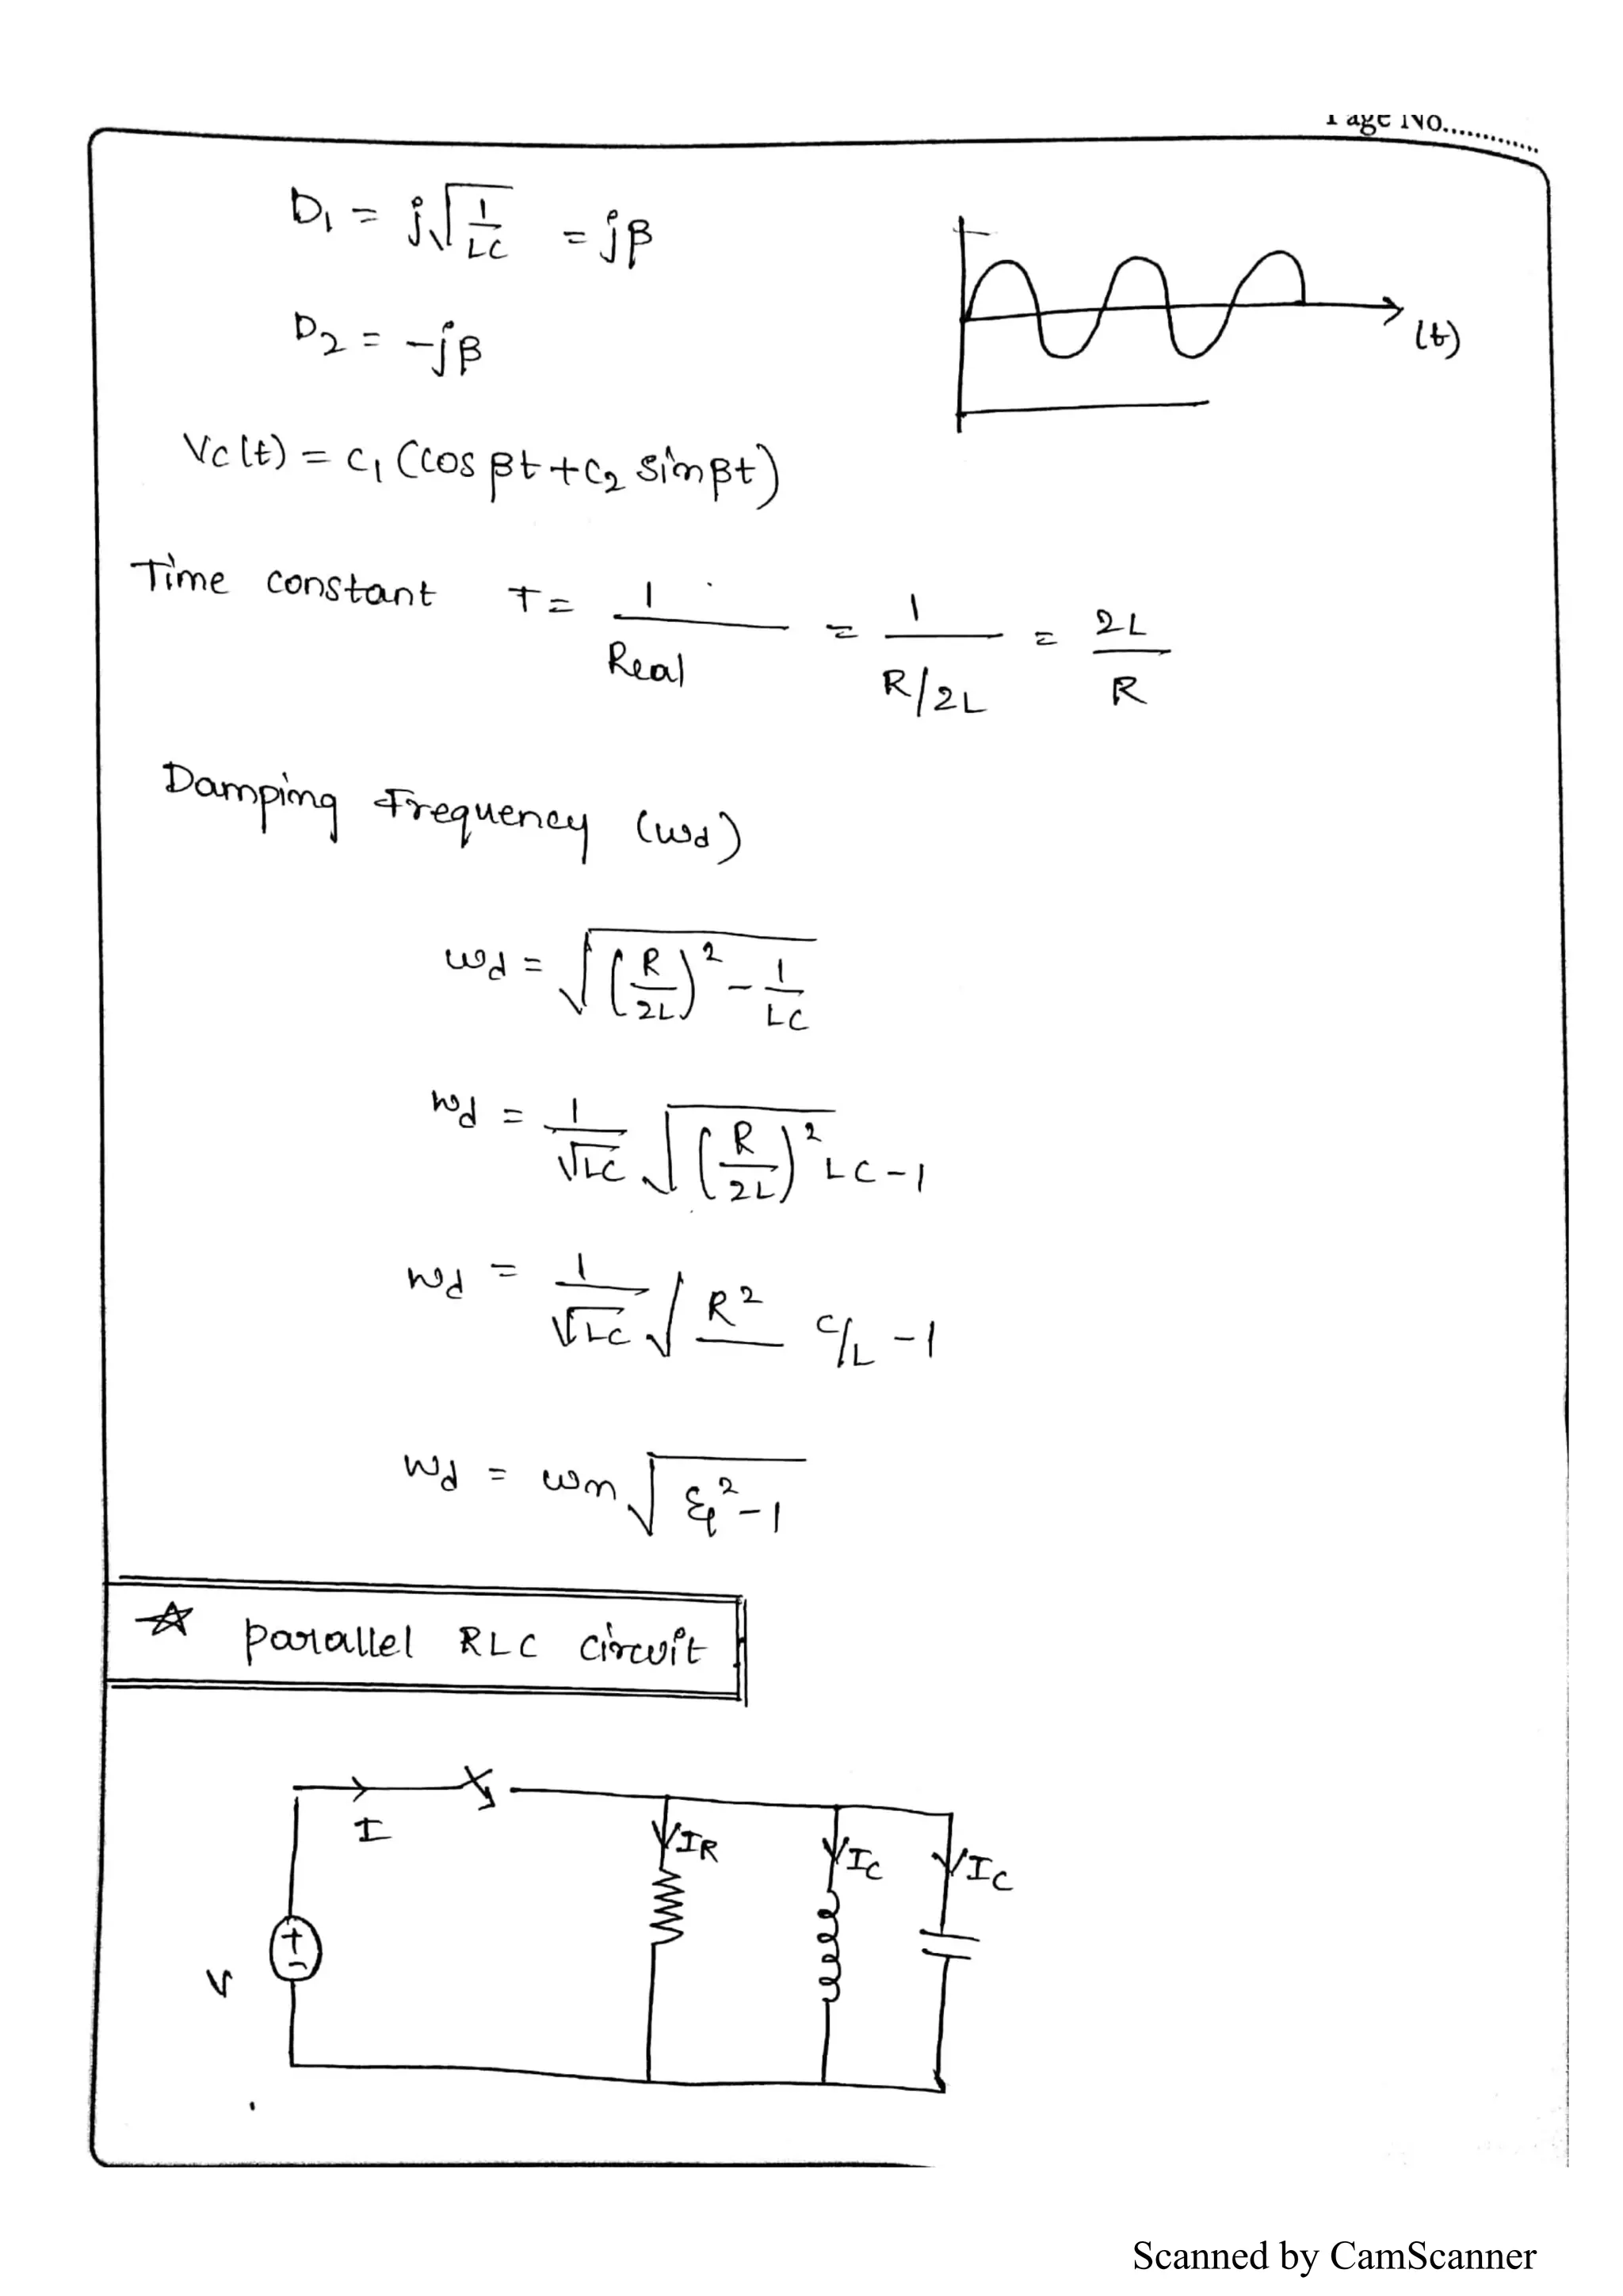 Page No............
D₁ = j√(1/LC) = jβ
D₂ = -jβ
(t)
Vc(t) = C₁ (Cos βt + C₂ sinβt)
Time constant T = 1/Real = 1/(R/2L) = 2L/R
Damping Frequency (ωd)
ωd = √((R/2L)² - 1/LC)
ωd = 1/√LC √((R/2L)² LC - 1
ωd = 1/√LC √ R²/ C/L - 1
ωd = ωn √(ξ² - 1)
☆ parallel RLC circuit
I
IR IC IC
+
-
V
Scanned by CamScanner